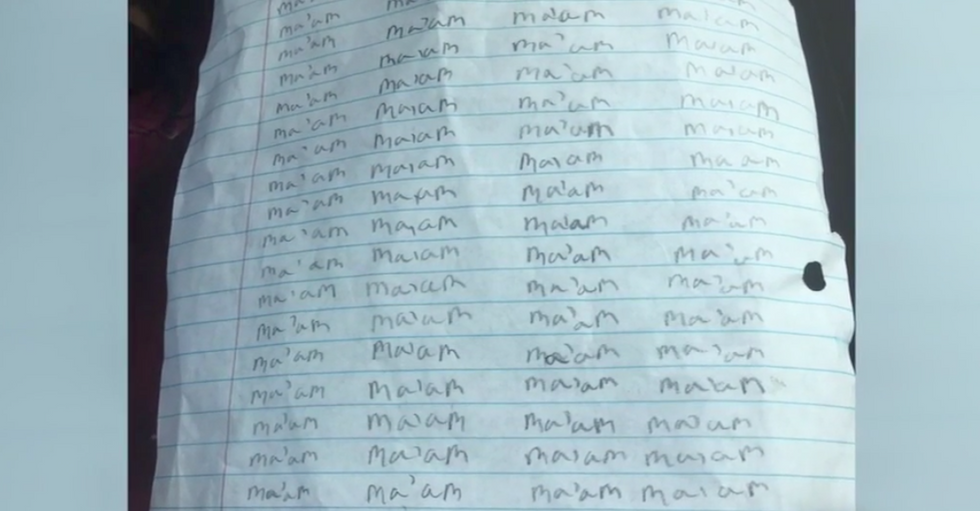 ma'am ma'am ma'am
ma'am ma'am ma'am ma'am
ma'am ma'am ma'am ma'am
ma'am ma'am ma'am ma'am
ma'am ma'am ma'am ma'am
ma'am ma'am ma'am ma'am
ma'am ma'am ma'am ma'am
ma'am ma'am ma'am ma'am
ma'am ma'am ma'am ma'am
ma'am ma'am ma'am ma'am
ma'am ma'am ma'am ma'am
ma'am ma'am ma'am ma'am
ma'am ma'am ma'am ma'am
ma'am ma'am ma'am ma'am
ma'am ma'am ma'am ma'am
ma'am ma'am ma'am ma'am
ma'am ma'am ma'am ma'am